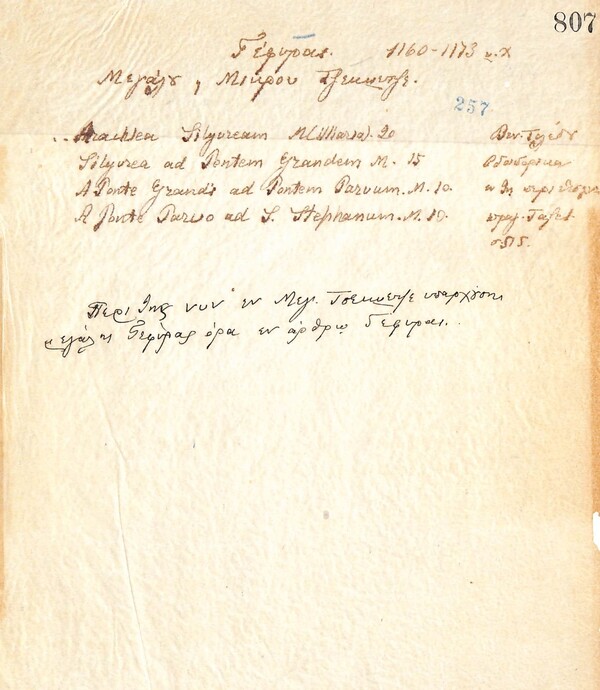 807
Γέφυραι. 1160-1173 μ.Χ
Μεγάλου, Μικρού Τζεκμετζε.
257
..Arachlea Silyvream M(illiaria). 20
Silyvrea ad Pontem Grandem M. 15
A Ponte Grandi ad Pontem Parvum. M. 10.
A Ponte Parvo ad S. Stephanum. M. 10.
Βεν. Τυδέλ
Οδοιπορικα
Περι της νυν εν Μεγ. Τσεκμετζε υπαρχουσης
μεγάλης Γεφύρας όρα εν άρθρω Γεφυραι.